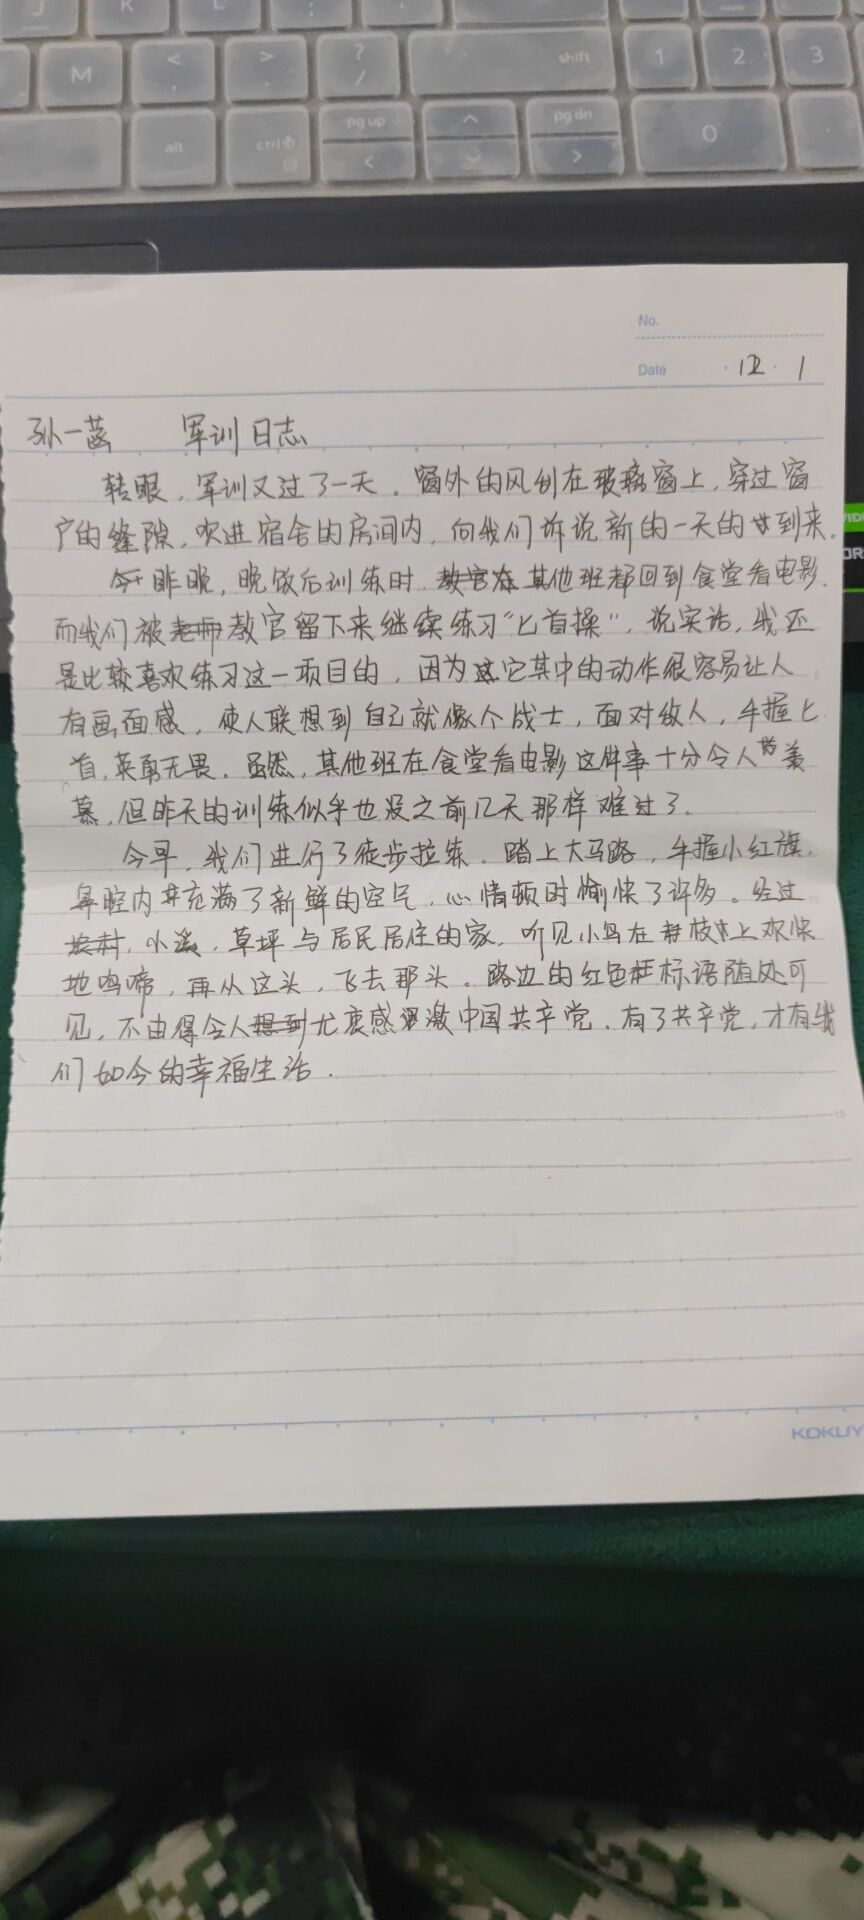 J K L : "
M < > ? / shift 1 2 3
alt ctrl pg up < ^ pg dn > 0
No.
Date 12 · 1
孙一菡 军训日志
转眼，军训又过了一天。窗外的风刮在玻璃窗上，穿过窗
户的缝隙，吹进宿舍的房间内，向我们诉说新的一天的到来。
昨晚，晚饭后训练时，其他班都回到食堂看电影，
而我们被教官留下来继续练习“匕首操”，说实话，我还
是比较喜欢练习这一项目的，因为它其中的动作很容易让人
有画面感，使人联想到自己就像个战士，面对敌人，手握匕
首，英勇无畏。虽然，其他班在食堂看电影这件事十分令人羡
慕，但昨天的训练似乎也没之前几天那样难过了。
今早，我们进行了徒步拉练。踏上大马路，手握小红旗，
鼻腔内充满了新鲜的空气，心情顿时愉快了许多。经过
小溪，草坪与居民居住的家，听见小鸟在枝上欢快
地鸣啼，再从这头，飞去那头。路边的红色标语随处可
见，不由得令人尤衷感激中国共产党，有了共产党，才有我
们如今的幸福生活。
KOKUY